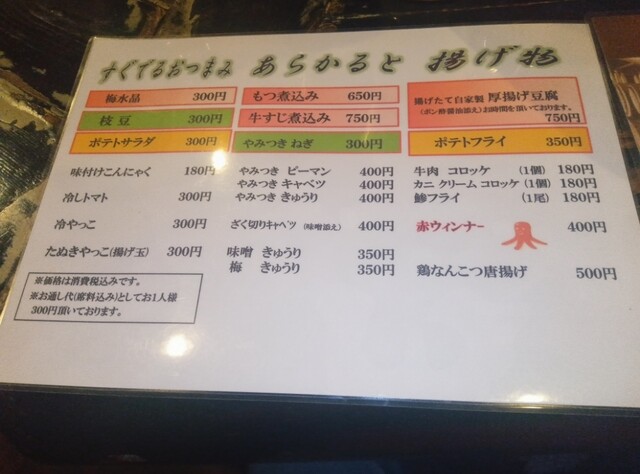 すぐでるおつまみ
梅水晶 300円
枝豆 300円
ポテトサラダ 300円
味付けこんにゃく 180円
冷しトマト 300円
冷やっこ 300円
たぬきやっこ(揚げ玉) 300円
※価格は消費税込みです。
※お通し代(席料込み)としてお1人様
300円頂いております。
あらかると
もつ煮込み 650円
牛すじ煮込み 750円
やみつき ねぎ 300円
やみつき ピーマン 400円
やみつき キャベツ 400円
やみつき きゅうり 400円
ざく切りキャベツ (味噌添え) 400円
味噌 きゅうり 350円
梅 きゅうり 350円
揚げ物
揚げたて自家製 厚揚げ豆腐
(ポン酢醤油添え)お時間を頂いております。
750円
ポテトフライ 350円
牛肉 コロッケ (1個) 180円
カニ クリーム コロッケ (1個) 180円
鯵フライ (1尾) 180円
赤ウィンナー 400円
鶏なんこつ唐揚げ 500円